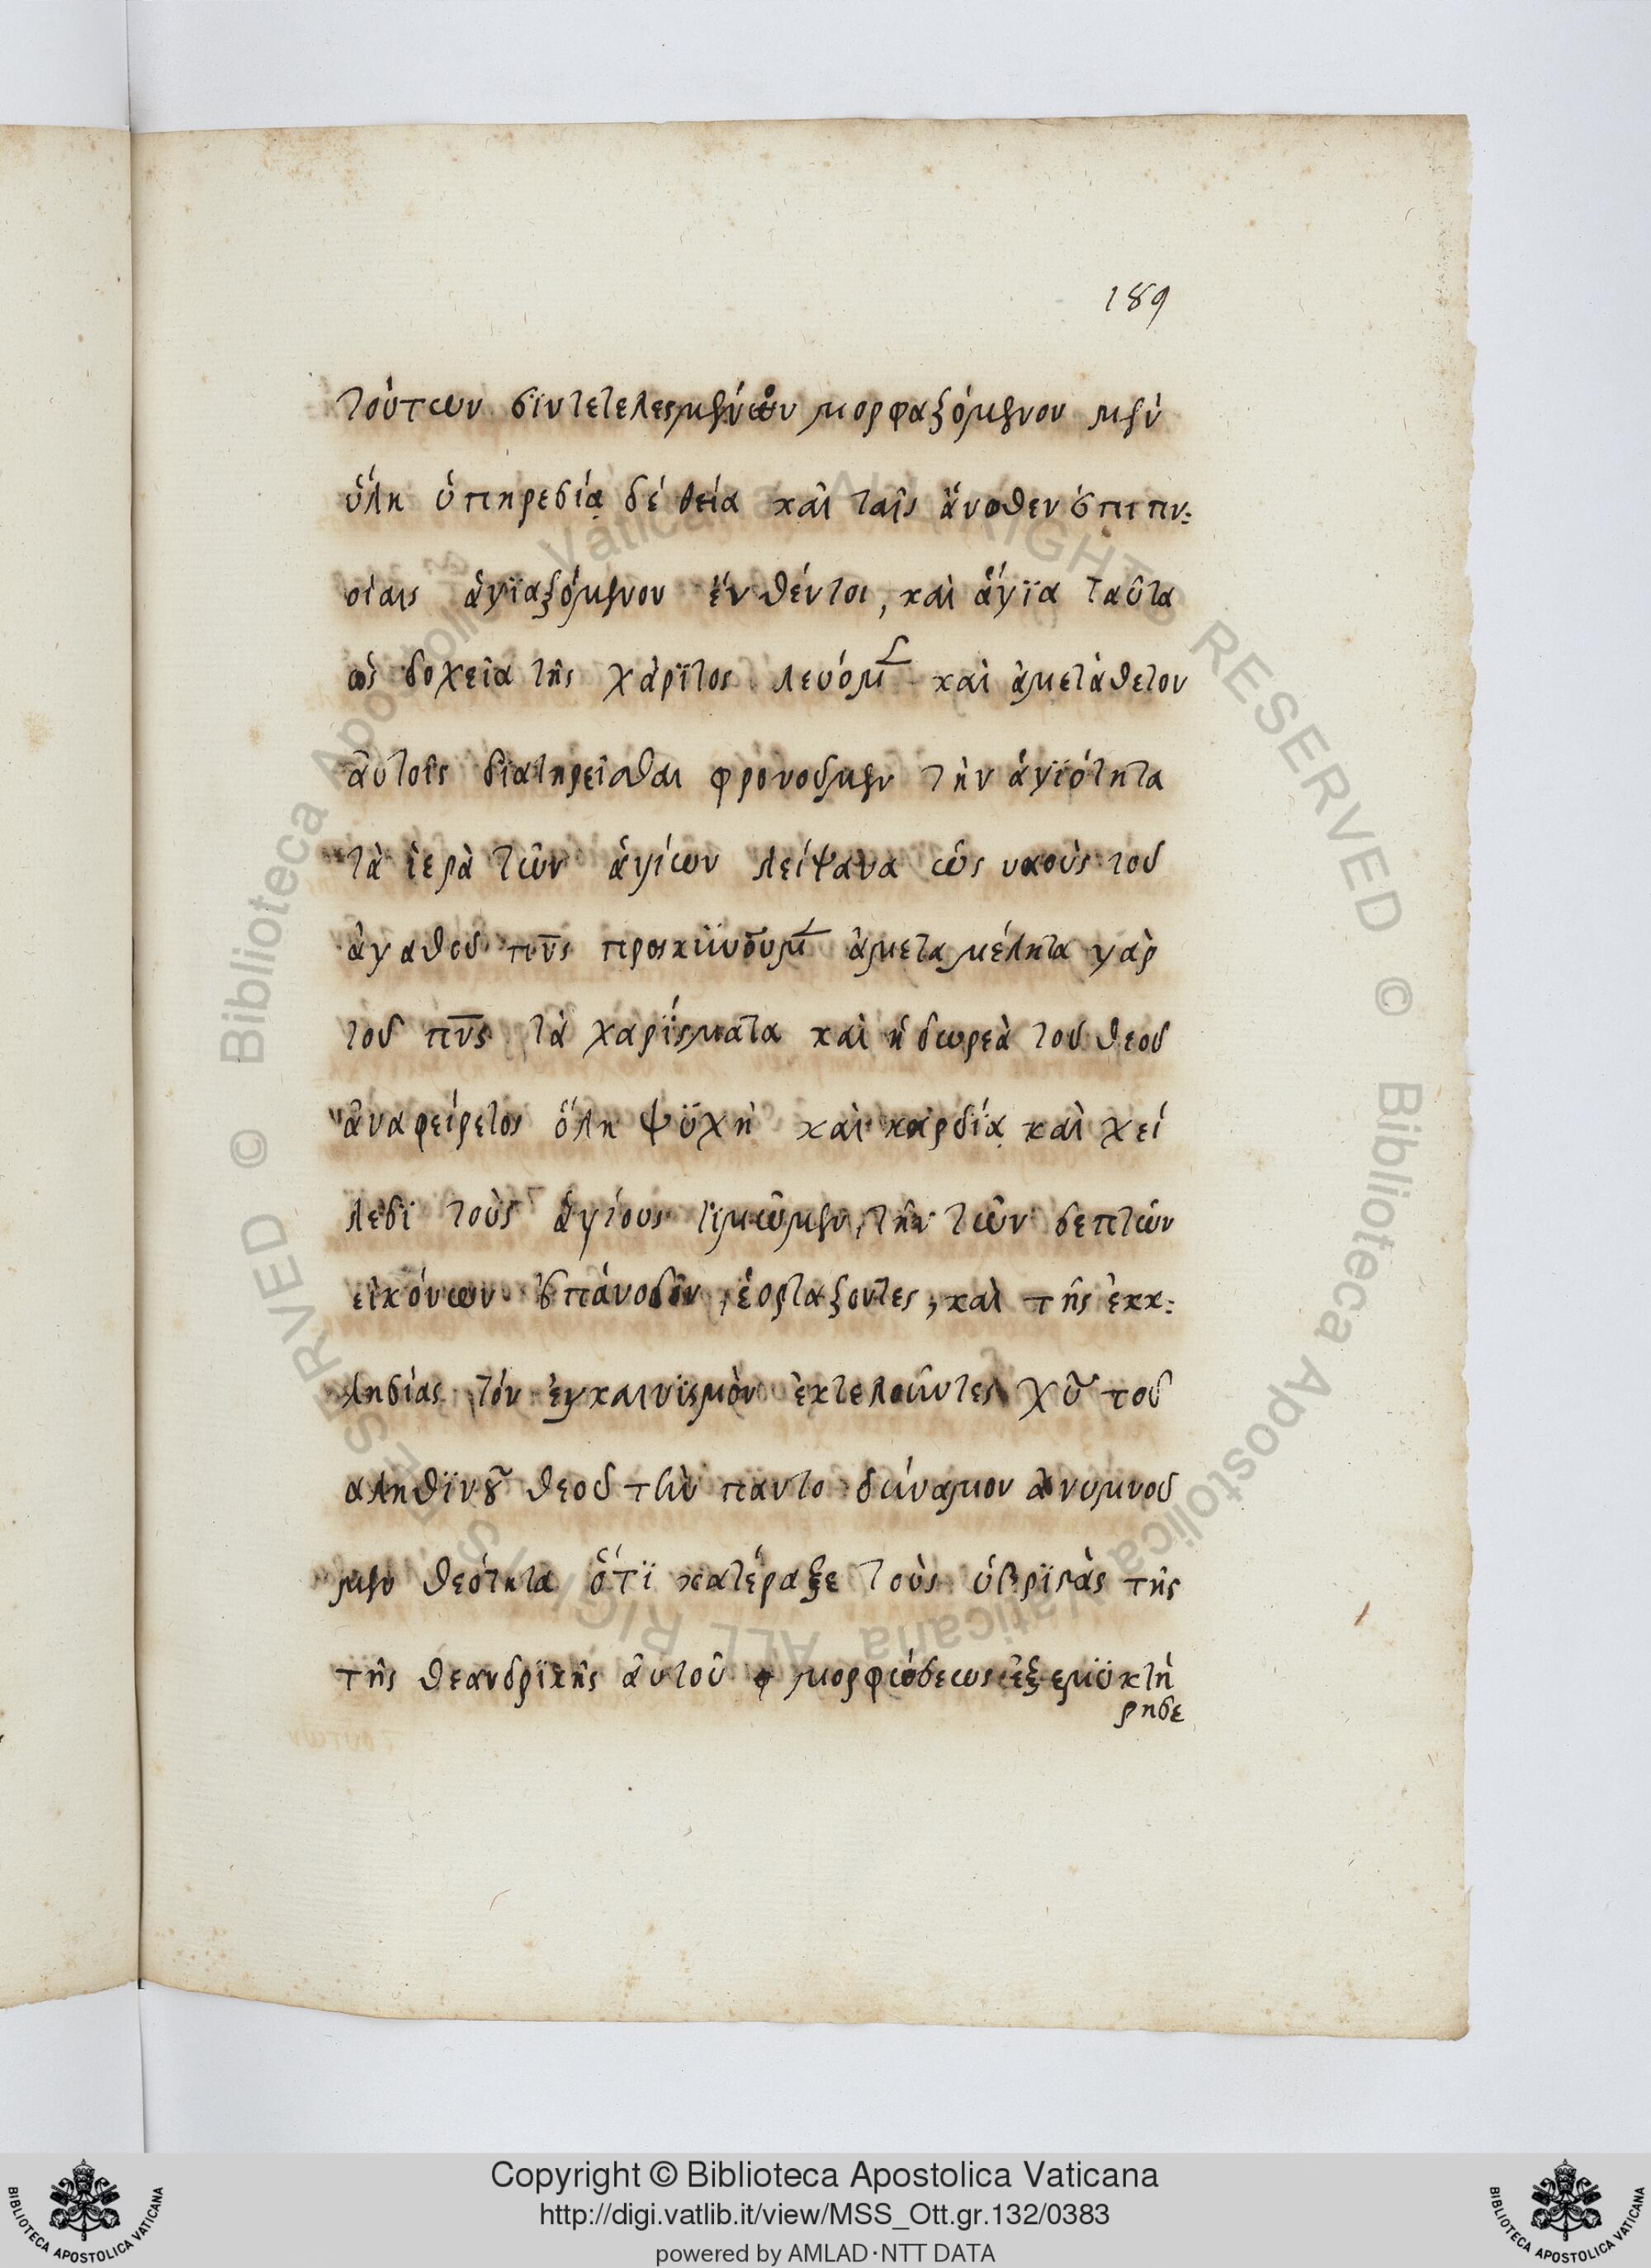 189
τούτων σϊντετελεσμένων μορφαζόμενον μὲν
ὕλη ὑπηρεσίᾳ δέ θεία καὶ ταῖς ἄνωθεν ἐπιπν:
οίαις ἁγϊαζόμενον ἐν θέντοι, καὶ ἅγϊα ταῦτα
ὡς δοχεῖα τῆς χάρϊτος καὶ ἀμετάθετον
αὐτοῖς διατηρεῖσθαι φρονοῦμεν τὴν ἁγϊότητα
τὰ ἱερὰ τῶν ἁγίων λείψανα ὡς ναοὺς τοῦ
ἀγαθοῦ πν̅ς προσκϋνοῦμ ἀμεταμέλητα γὰρ
τοῦ πν̅ς τὰ χαρίσματα καὶ ἡ δωρεὰ τοῦ θεοῦ
ἀναφείρετος ὅλη ψϋχὴ καὶ καρδίᾳ καὶ χεί
λεσϊ τοὺς ἁγίους τϊμῶμεν, τὴν τῶν σεπτῶν
εἰκόνων ἐπάνοδον, ἑορταζοντες, καὶ τῆς ἐκκ:
λησίας τόν ἐγκαινϊσμὸν ἐκτελοῦντες χυ̅ τοῦ
αληθϊνοῦ θεοῦ τὴν παντοδύναμον ἀνυμνοῦ
μεν θεότητα ὅτϊ κατέραξε τοὺς ὑβρϊστὰς τῆς
τῆς θεανδρϊκῆς αὐτοῦ μορφώσεως ἐξεμϋκτὴ
ρησε
Copyright © Biblioteca Apostolica Vaticana
http://digi.vatlib.it/view/MSS_Ott.gr.132/0383
powered by AMLAD·NTT DATA
BIBLIOTECA APOSTOLICA VATICANA
BIBLIOTECA APOSTOLICA VATICANA
© Biblioteca Apostolica Vaticana ALL RIGHTS RESERVED
© Biblioteca Apostolica Vaticana ALL RIGHTS RESERVED